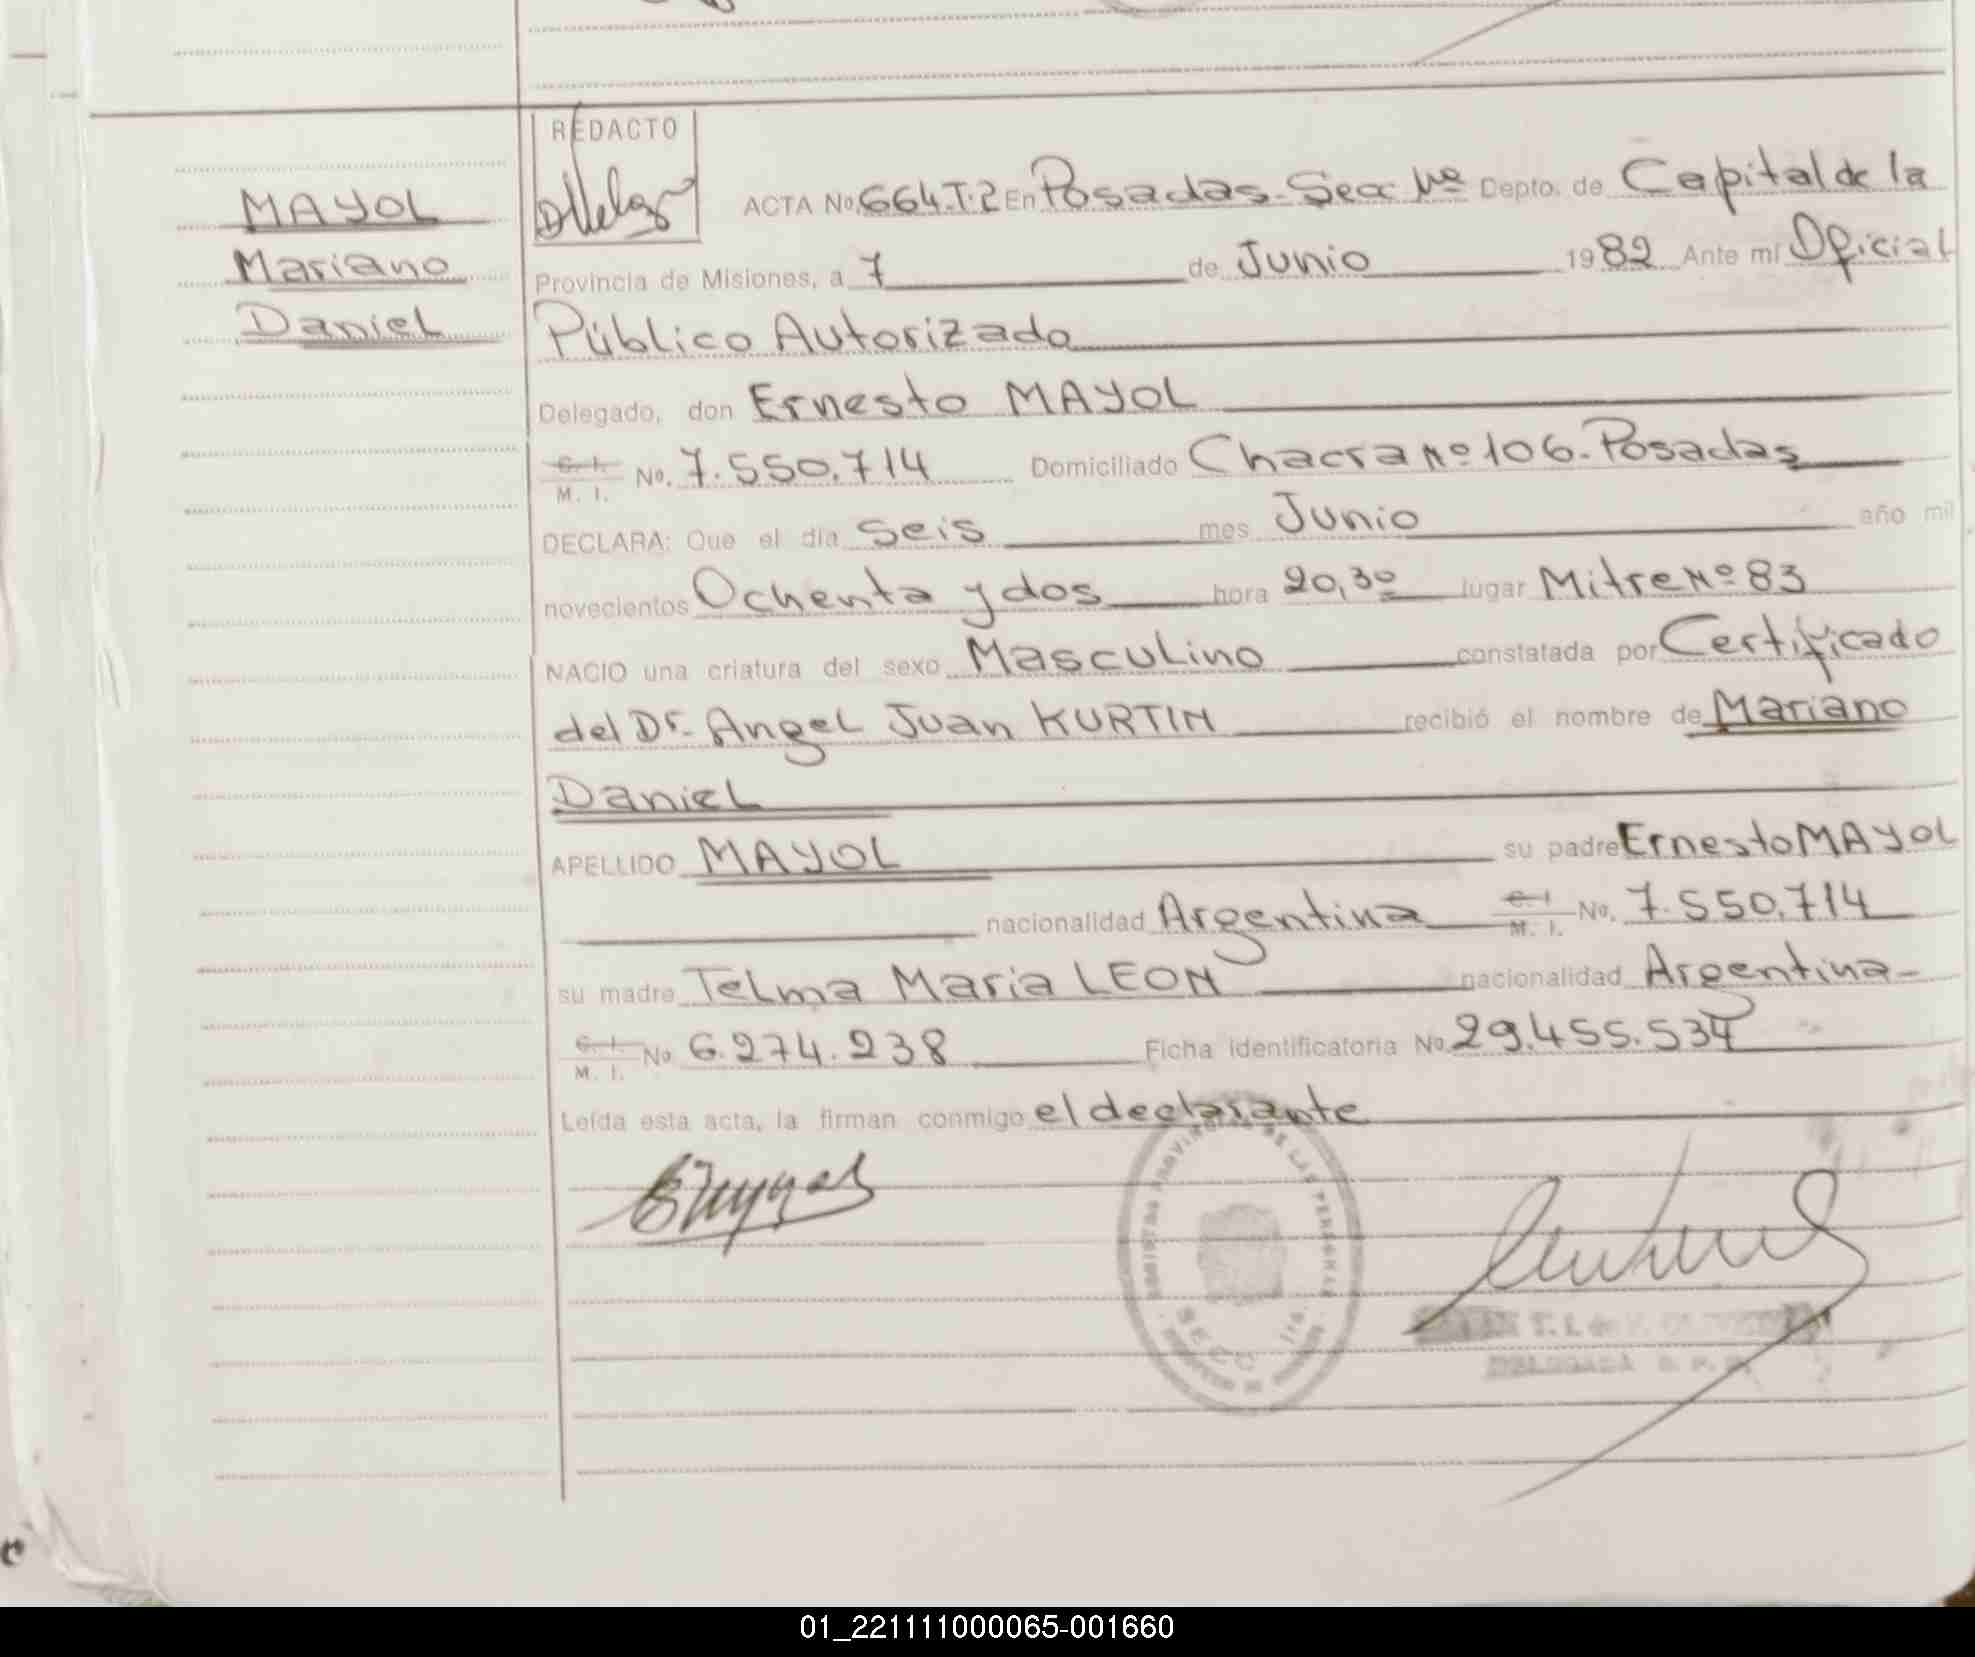 MAYOL
Mariano
Daniel
REDACTO
ACTA No. 664.T.2 En Posadas - Secc Nº Depto. de Capital de la
Provincia de Misiones, a 7 de Junio 1982 Ante mí Oficial
Público Autorizado
Delegado, don Ernesto MAYOL
C. I. M. I. No. 7.550.714 Domiciliado Chacra Nº 106. Posadas
DECLARA: Que el día Seis mes Junio año mil
novecientos Ochenta y dos hora 20,30 lugar Mitre Nº 83
NACIO una criatura del sexo Masculino constatada por Certificado
del Dr. Angel Juan KURTIN recibió el nombre de Mariano
Daniel
APELLIDO MAYOL su padre Ernesto MAYOL
nacionalidad Argentina C. I. M. I. No. 7.550.714
su madre Telma Maria LEON nacionalidad Argentina -
C. I. M. I. No 6.274.238 Ficha identificatoria No 29.455.534
Leída esta acta, la firman conmigo el declarante
DE LAS PERSONAS
SECC
DELEGADA
01_221111000065-001660